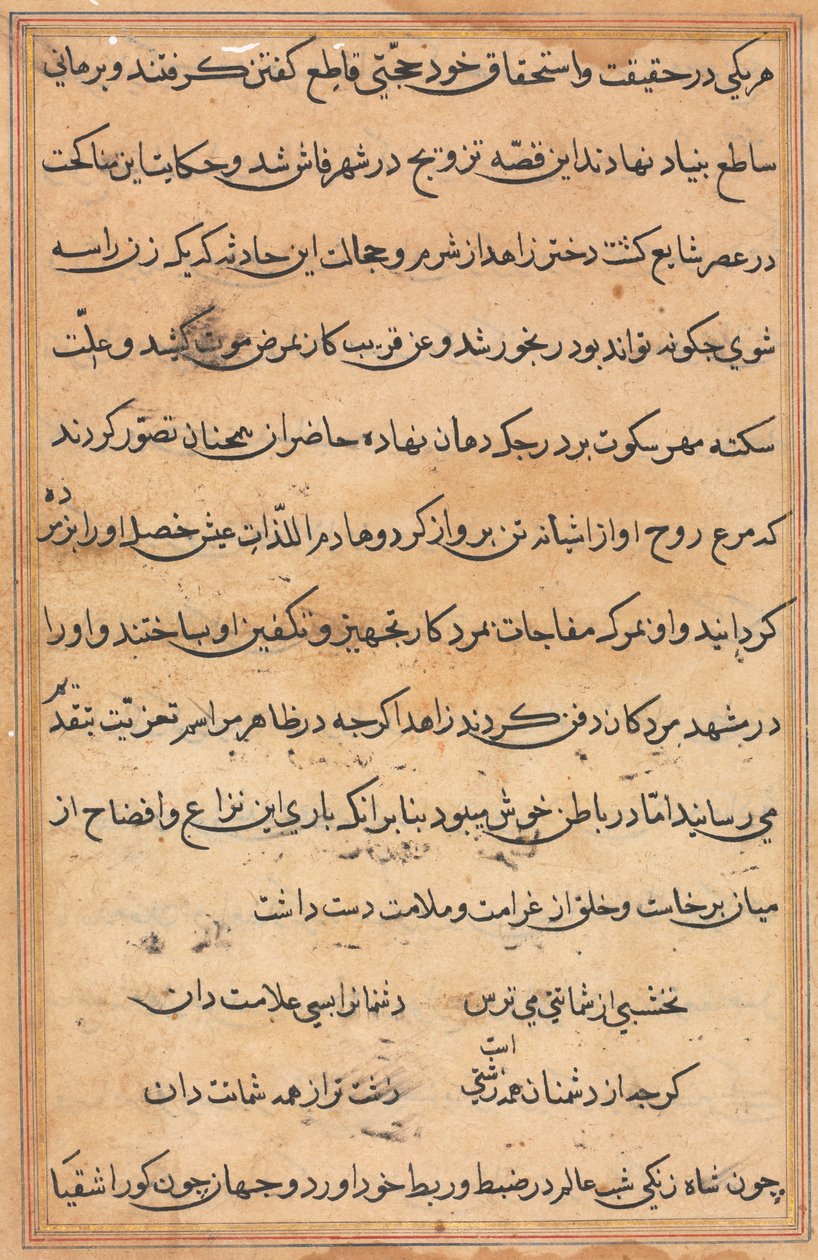 هر یکی در حقیقت و استحقاق خود حجّتی قاطع کفتن کرفتند و برهانی
ساطع بنیاد نهادند این قصّه تزویج در شهر فاش شد و حکایت این مناکحت
در عصر شایع کشت دختر زاهد از شرم و خجالت این حادثه که یک زن را سه
شوی جکونه تواند بود رنجور شد و عن قریب کار بمرض موت کشید و علّت
سکته مهر سکوت بر درجک دهان نهاده حاضران همچنان تصوّر کردند
که مرغ روح او از اشیانه تن پرواز کرد و هادم اللذّات عیش خصل او را پژمرده
کردانید و او بمرک مفاجات بمرد کار تجهیز و تکفین او بساختند و او را
در مشهد مردکان دفن کردند زاهد اکرجه در ظاهر مراسم تعزیّت بتقدیم
می رسانید امّا در باطن خوش میبود بنا برانکه باری این نزاع و افضاح از
میان برخاست و خلق از غرامت و ملامت دست داشت
نخشبی از شماتتی می ترس دشمنانرا بسی علامت دان
کرجه از دشمنان همه زشتی است زشت تر از همه شماتت دان
چون شاه زنکی شب عالم در ضبط و ربط خود اورد و جهان چون کور اشقیا